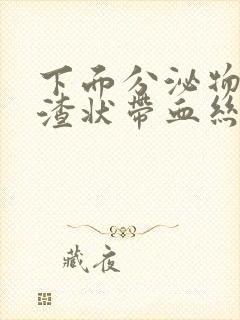 下而分泌物
渣状帶血絲
藏夜